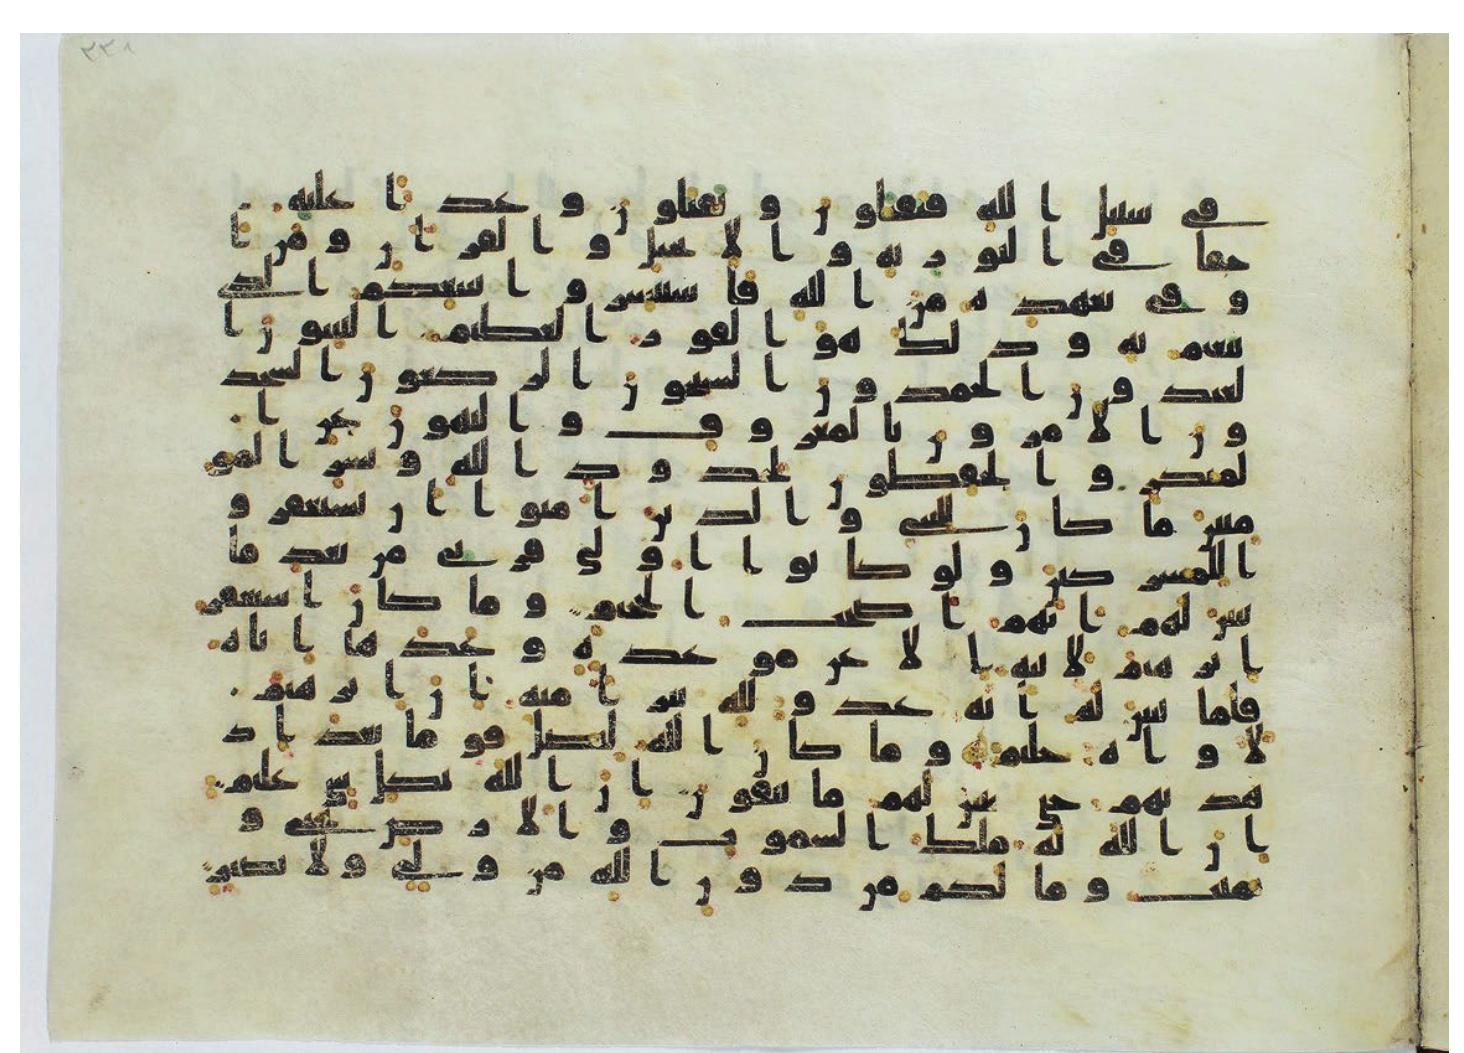 ٢٢١
في سبيل الله فيقتلون ويقتلون وعدا عليه
حقا في التورية والانجيل والقران ومن ا
وفي بعهده من الله فاستبشروا ببيعكم الذي
بيعتم به وذلك هو الفوز العظيم التيبون ا
لعبدون الحمدون السيحون الركعون السجد
ون الامرون بالمعروف والنهون عن ا
لمنكر والحفظون لحدود الله وبشر المو
منين ما كان للنبي والذين امنوا ان يستغفرو
ا للمشركين ولو كانوا اولي قربى من بعد ما
تبين لهم انهم اصحب الجحيم وما كان استغفر
ابرهيم لابيه الا عن موعدة وعدها اياه
فلما تبين له انه عدو لله تبرا منه ان ابرهيم
لاوه حليم وما كان الله ليضل قوما بعد اذ
هديهم حتى يبين لهم ما يتقون ان الله بكل شي عليم
ان الله له ملك السموت والارض يحيي و
يميت وما لكم من دون الله من ولي ولا نصير